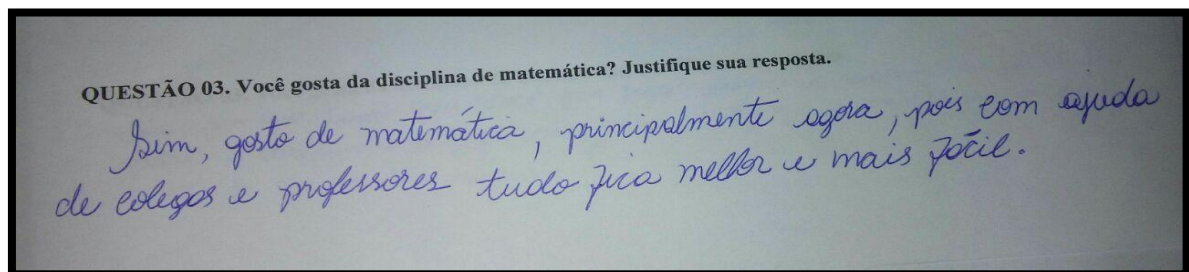 QUESTÃO 03. Você gosta da disciplina de matemática? Justifique sua resposta.
Sim, gosto de matemática, principalmente agora, pois com ajuda
de colegas e professores tudo fica melhor e mais fácil.